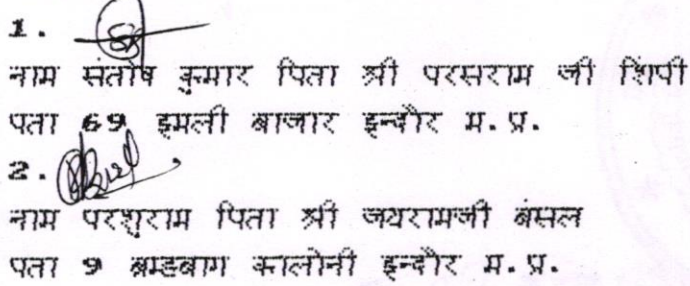 1.
नाम संतोष कुमार पिता श्री परसराम जी शिंपी
पता 69 इमली बाजार इन्दौर म.प्र.
2.
नाम परशुराम पिता श्री जयरामजी बंसल
पता 9 ब्रम्हबाग कालोनी इन्दौर म.प्र.